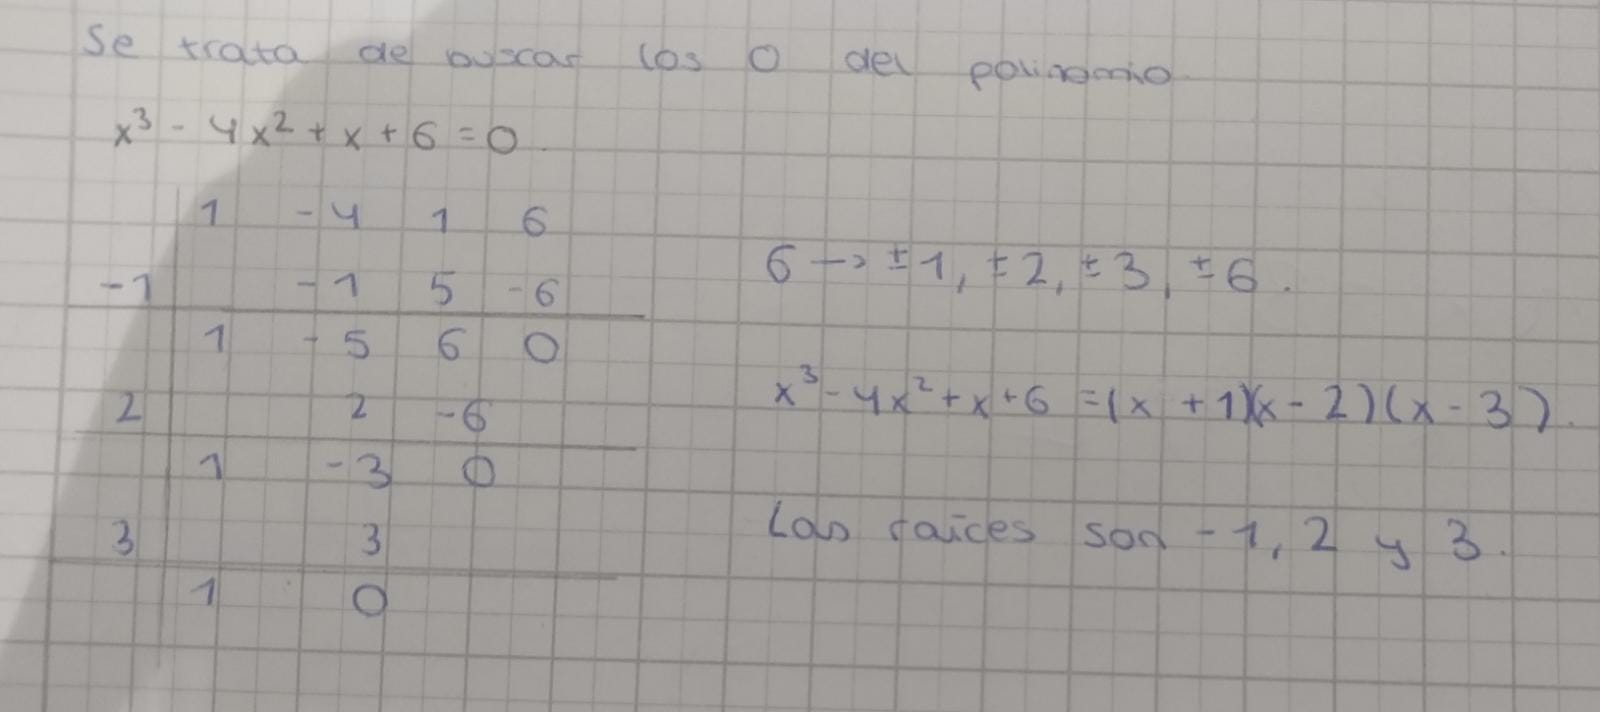 Se trata de buscar los 0 del polinomio
x³ - 4x² + x + 6 = 0.
1 -4 1 6
-1 -1 5 -6
1 -5 6 0
2 2 -6
1 -3 0
3 3
1 0
6 → ±1, ±2, ±3, ±6.
x³ - 4x² + x + 6 = (x + 1)(x - 2)(x - 3).
Las raíces son -1, 2 y 3.